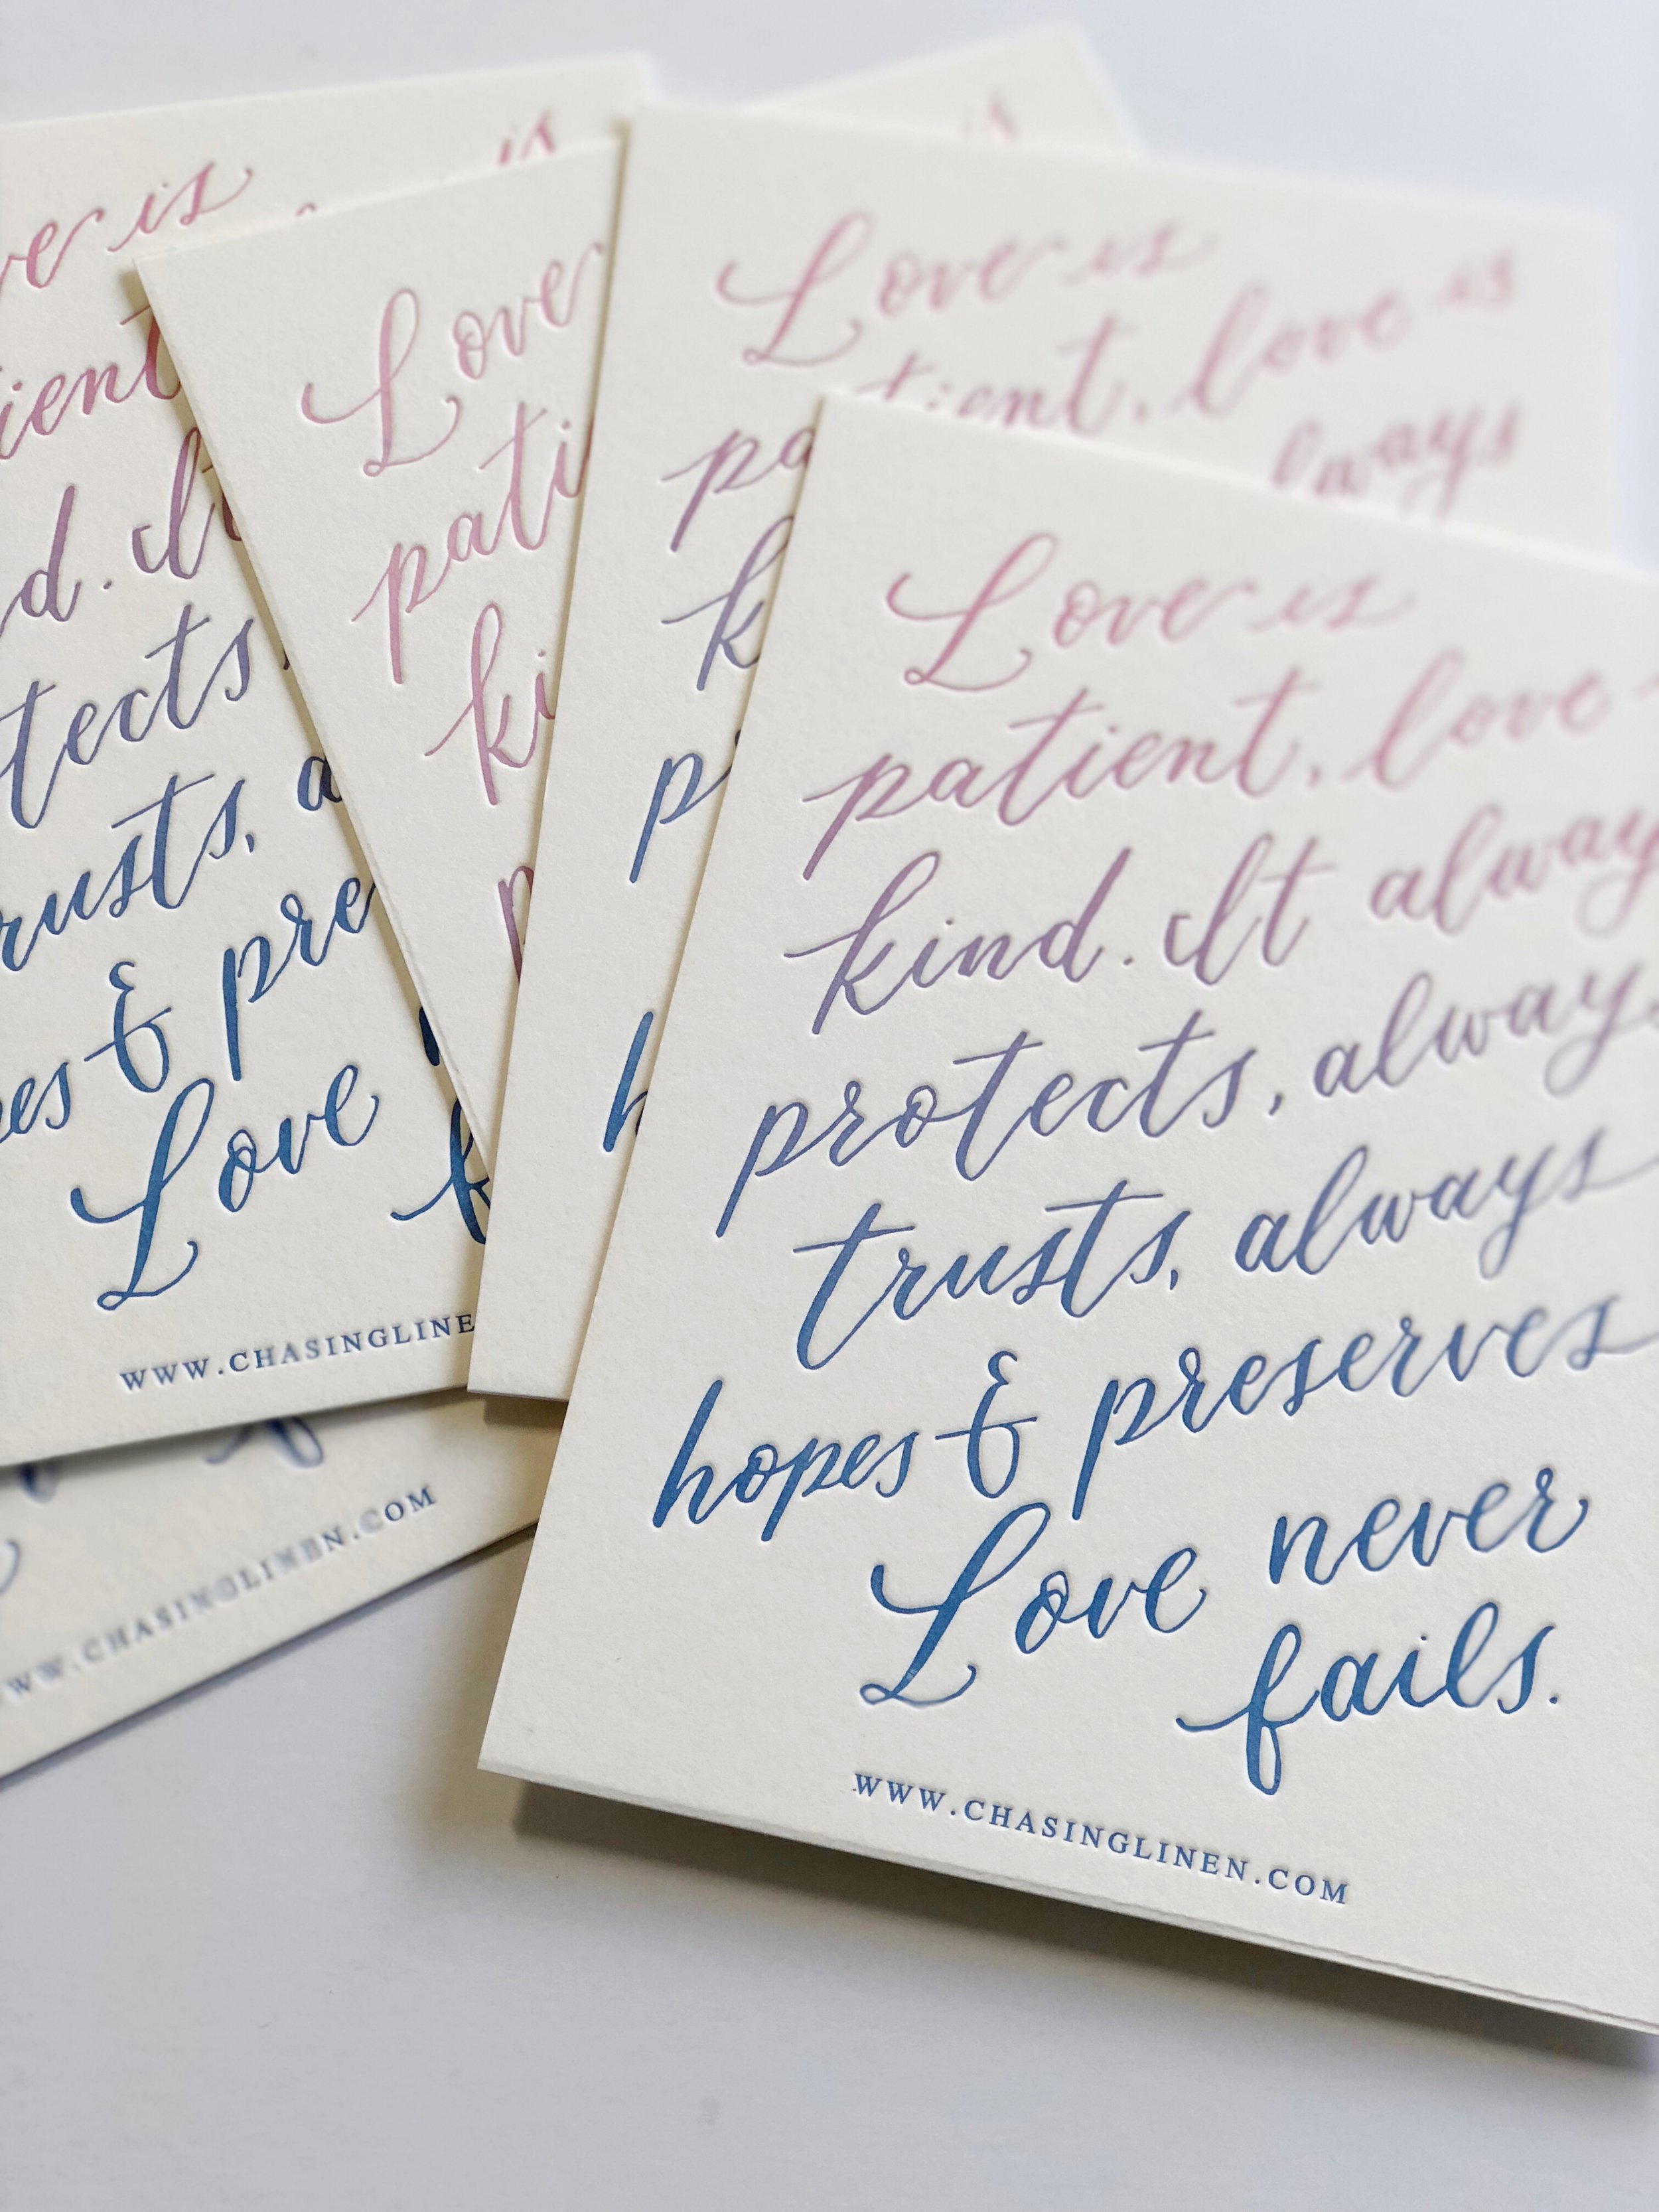 ve is
ient
d. It
tects,
rusts, a
es & pre
Love
WWW.CHASINGLINE
WWW.CHASINGLINEN.COM
is
Love
pati
ki
p
is
Love is
love is
lways
k
p
h
Love is
patient, love
kind. It alway
protects, alway
trusts, always
hopes & preserves
Love never
fails.
WWW.CHASINGLINEN.COM